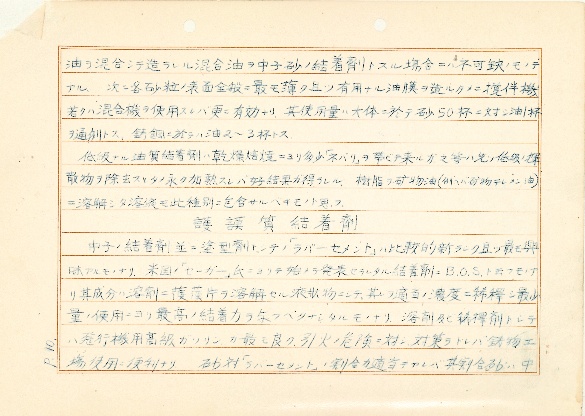 油ヲ混合シテ造ラレル混合油ヲ中子砂ノ結着劑トスル場合ニハ不可欠ノモノ
デアル。次ニ各砂粒ノ表面全般ニ最モ薄ク且ツ有用ナル油膜ヲ造ルタメニ攪伴機
若クハ混合機ヲ使用スレバ更ニ有効ナリ 其使用量ハ大体ニ於テ砂50杯ニ対シ油1杯
ヲ適割トス、鋳鋼ニ於テハ油2〜3杯トス
低級ナル油質結着劑ハ乾燥焙焼ニヨリ多少「ネバリ」ヲ帯ビ来ルガ
散物ヲ除去スル 永ク加熱スレバ好結果ガ得ラレル、樹脂ヲ礦物油
ニ溶解シタ溶液モ此種類ニ包含サルベキモノト思フ
護謨質結着劑
中子ノ結着劑並ニ塗型劑トシテノ「ラバーセメント」ハ比較的新ラシク且ツ最モ興
味アルモノナリ、米国ノ 氏ニヨリテ始メテ発表セラレタル結着劑ニ
リ其成分ハ溶劑ニ護謨片ヲ溶解セル液状物ニシテ、其レヲ適当ノ濃度ニ稀釋シ最少
量ノ使用ニヨリ最高ノ結着力ヲ 溶劑及ビ稀釋劑トシテ
ハ飛行機用高級ガソリンガ最モ良ク、引火ノ危険ニ対シ対策ヲトレバ鋳物工
場使用ニ便利ナリ 砂対「ラバーセメント」ノ割合ガ適当デアレバ其割合 中
P.10.